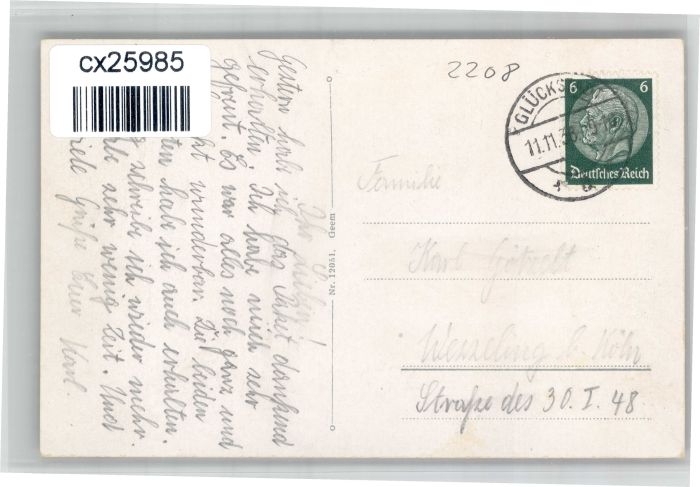 cx25985
2208
GLÜCKS
11.11.3
6 6
Deutsches Reich
Ihr Lieben!
Gestern hab ich das Paket dankend
erhalten. Ich habe mich sehr
gefreut. Es war alles noch ganz und
wunderbar. Die beiden
ten habe ich auch erhalten.
schreibe ich wieder mehr.
sehr wenig Zeit. Und
viele Grüße Euer Karl.
Nr. 12051. Geem
Familie
Karl
Wesseling b. Köln
Straße des 30. I. 48